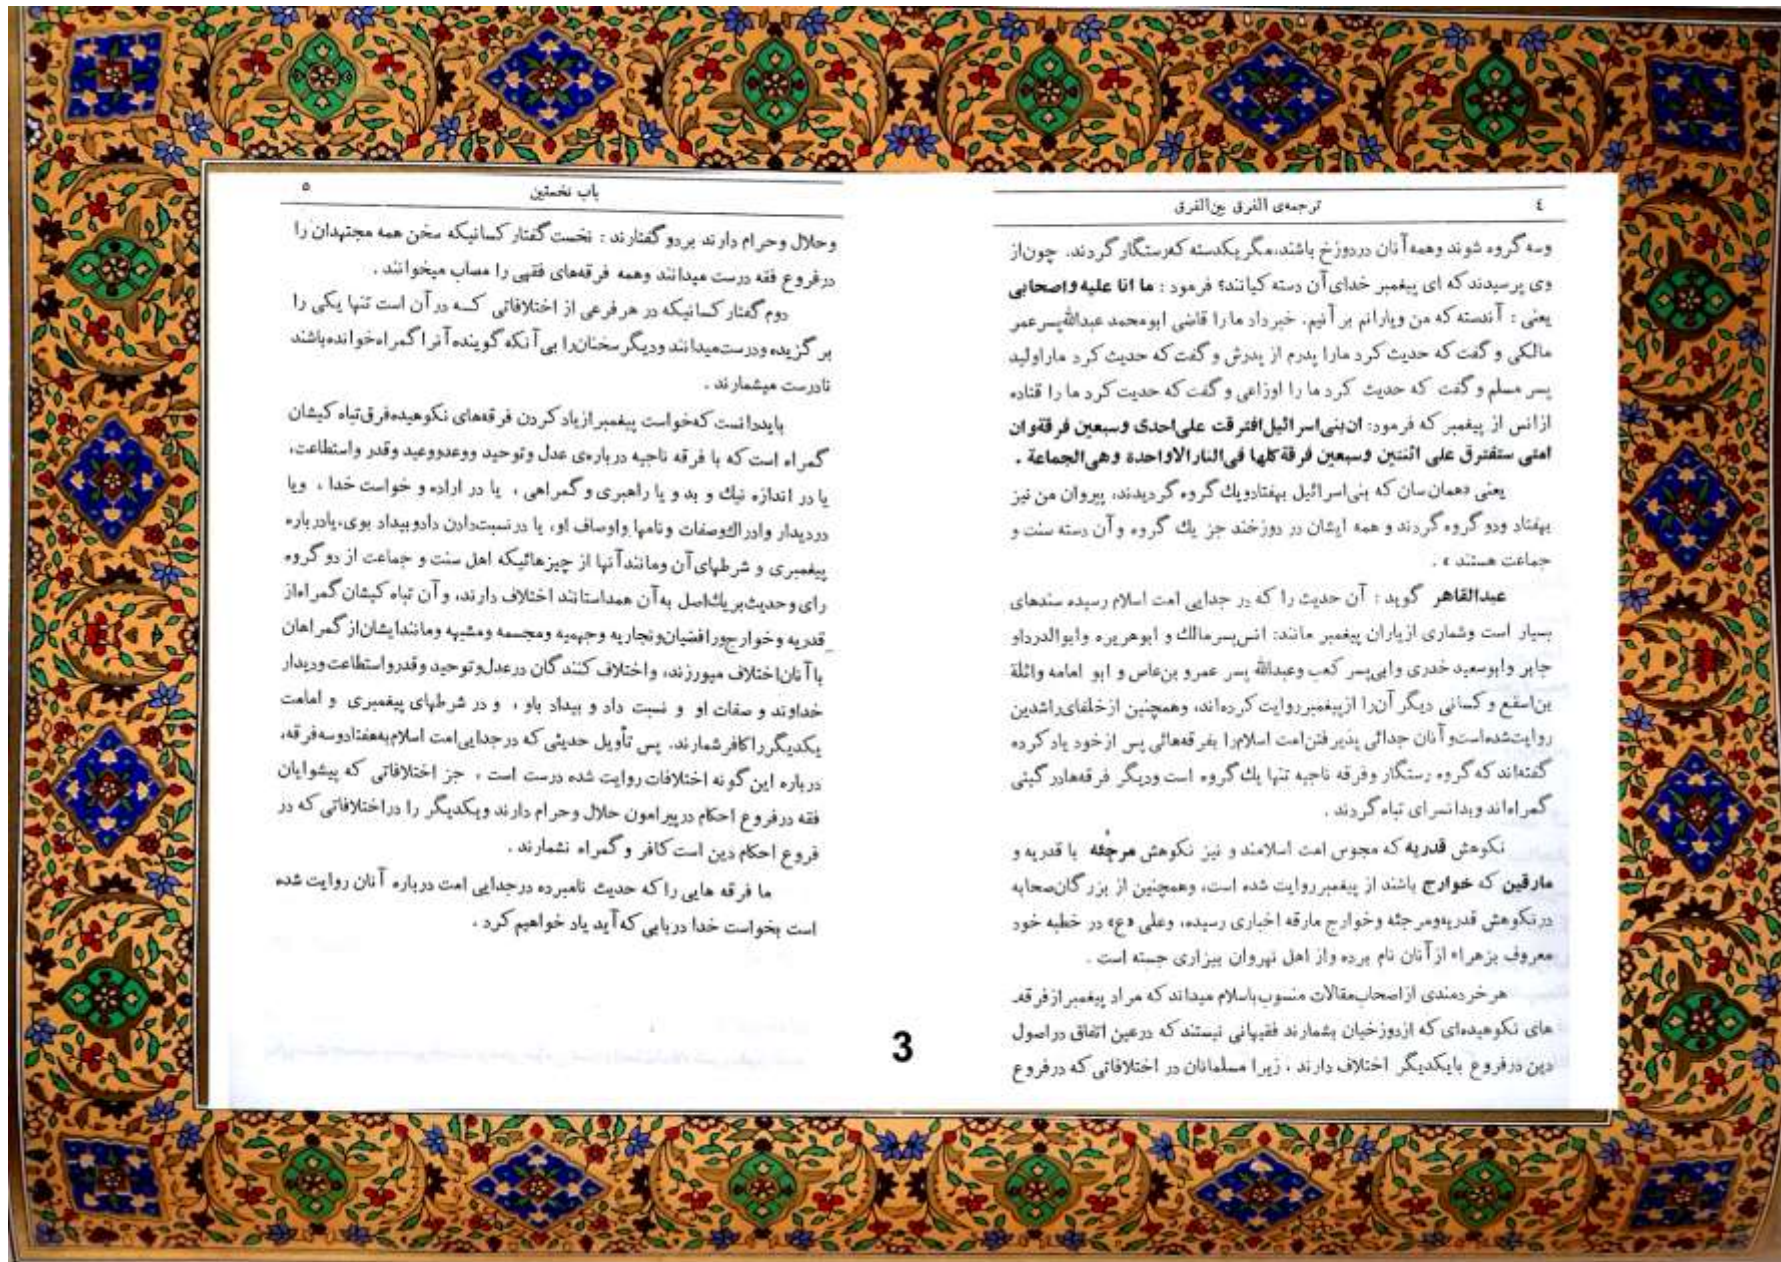 ٤
ترجمه‌ی الفرق بین‌الفرق
وسه گروه شوند وهمه آنان دردوزخ باشند،مگر یکدسته که‌رستگار گردند. چون‌از
وی پرسیدند که ای پیغمبر خدای آن دسته کیانند؟ فرمود : ما انا علیه واصحابی
یعنی : آندسته که من ویارانم بر آنیم. خبر داد ما را قاضی ابومحمد عبدالله‌پسرعمر
مالکی و گفت که حدیث کرد مارا پدرم از پدرش و گفت که حدیث کرد ماراولید
پسر مسلم و گفت که حدیث کرد ما را اوزاعی و گفت که حدیث کرد ما را قتاده
ازانس از پیغمبر که فرمود: ان‌بنی‌اسرائیل‌افترقت علی‌احدی وسبعین فرقة‌وان
امتی ستفترق علی اثنتین وسبعین فرقة کلها فی‌النارالاواحدة وهی‌الجماعة .
یعنی «همان‌سان که بنی‌اسرائیل بهفتادویك گروه گردیدند، پیروان من نیز
بهفتاد ودو گروه گردند و همه ایشان در دوزخند جز یك گروه وآن دسته سنت و
جماعت هستند » .
عبدالقاهر گوید : آن حدیث را که در جدایی امت اسلام رسیده سندهای
بسیار است وشماری ازیاران پیغمبر مانند: انس‌پسرمالك و ابوهریره وابوالدرداو
جابر وابوسعید خدری وابی‌پسر کعب وعبدالله پسر عمرو بن‌عاص و ابو امامه واثلة
بن‌اسقع و کسانی دیگر آن‌را ازپیغمبرروایت کرده‌اند، وهمچنین ازخلفای‌راشدین
روایت‌شده‌است‌وآنان جدائی پذیرفتن‌امت اسلام‌را بفرقه‌هائی پس ازخود یاد کرده
گفته‌اند که گروه رستگار وفرقه ناجیه تنها یك گروه است ودیگر فرقه‌هادر گیتی
گمراه‌اند وبدانسرای تباه گردند .
نکوهش قدریه که مجوس امت اسلامند و نیز نکوهش مرجئه با قدریه و
مارقین که خوارج باشند از پیغمبر روایت شده است، وهمچنین از بزرگان‌صحابه
درنکوهش قدریه‌ومرجئه وخوارج مارقه اخباری رسیده، وعلی «ع» در خطبه خود
معروف بزهراء ازآنان نام برده واز اهل نهروان بیزاری جسته است .
هر خردمندی ازاصحاب‌مقالات منسوب‌باسلام میداند که مراد پیغمبر ازفرقه‌ـ
های نکوهیده‌ای که ازدوزخیان بشمارند فقیهانی نیستند که درعین اتفاق دراصول
دین درفروع بایکدیگر اختلاف دارند ، زیرا مسلمانان در اختلافاتی که درفروع
باب نخستین
٥
وحلال وحرام دارند بردو گفتارند : نخست گفتار کسانیکه سخن همه مجتهدان را
درفروع فقه درست میدانند وهمه فرقه‌های فقهی را مصاب میخوانند .
دوم گفتار کسانیکه در هرفرعی از اختلافاتی کـه درآن است تنها یکی را
بر گزیده ودرست‌میدانند ودیگر سخنان‌را بی‌آنکه گوینده آنرا گمراه‌خوانده‌باشند
نادرست میشمارند .
بایددانست که‌خواست پیغمبر ازیاد کردن فرقه‌های نکوهیده‌فرق‌تباه کیشان
گمراه است که با فرقه ناجیه درباره‌ی عدل وتوحید ووعدووعید وقدر واستطاعت،
یا در اندازه نیك و بد و یا راهبری و گمراهی ، یا در اراده و خواست خدا ، ویا
دردیدار وادراك‌وصفات ونامها واوصاف او، یا درنسبت‌دادن دادوبیداد بوی،یادرباره
پیغمبری و شرطهای آن ومانندآنها از چیزهائیکه اهل سنت و جماعت از دو گروه
رای وحدیث‌بریك‌اصل به‌آن همداستانند اختلاف دارند، و آن تباه کیشان گمراه‌از
قدریه وخوارج‌ورافضیان‌ونجاریه وجهمیه ومجسمه ومشبهه ومانندایشان‌از گمراهان
باآنان‌اختلاف میورزند، واختلاف کنندگان درعدل‌وتوحید وقدرواستطاعت ودیدار
خداوند و صفات او و نسبت داد و بیداد باو ، و در شرطهای پیغمبری و امامت
یکدیگررا کافرشمارند. پس تأویل حدیثی که درجدایی‌امت اسلام‌به‌هفتادوسه‌فرقه،
درباره این گونه اختلافات روایت شده درست است ، جز اختلافاتی که پیشوایان
فقه درفروع احکام درپیرامون حلال وحرام دارند ویکدیگر را دراختلافاتی که در
فروع احکام دین است کافر و گمراه نشمارند .
ما فرقه هایی را که حدیث نامبرده درجدایی امت درباره آنان روایت شده
است بخواست خدا دربابی که آید یاد خواهیم کرد .
3